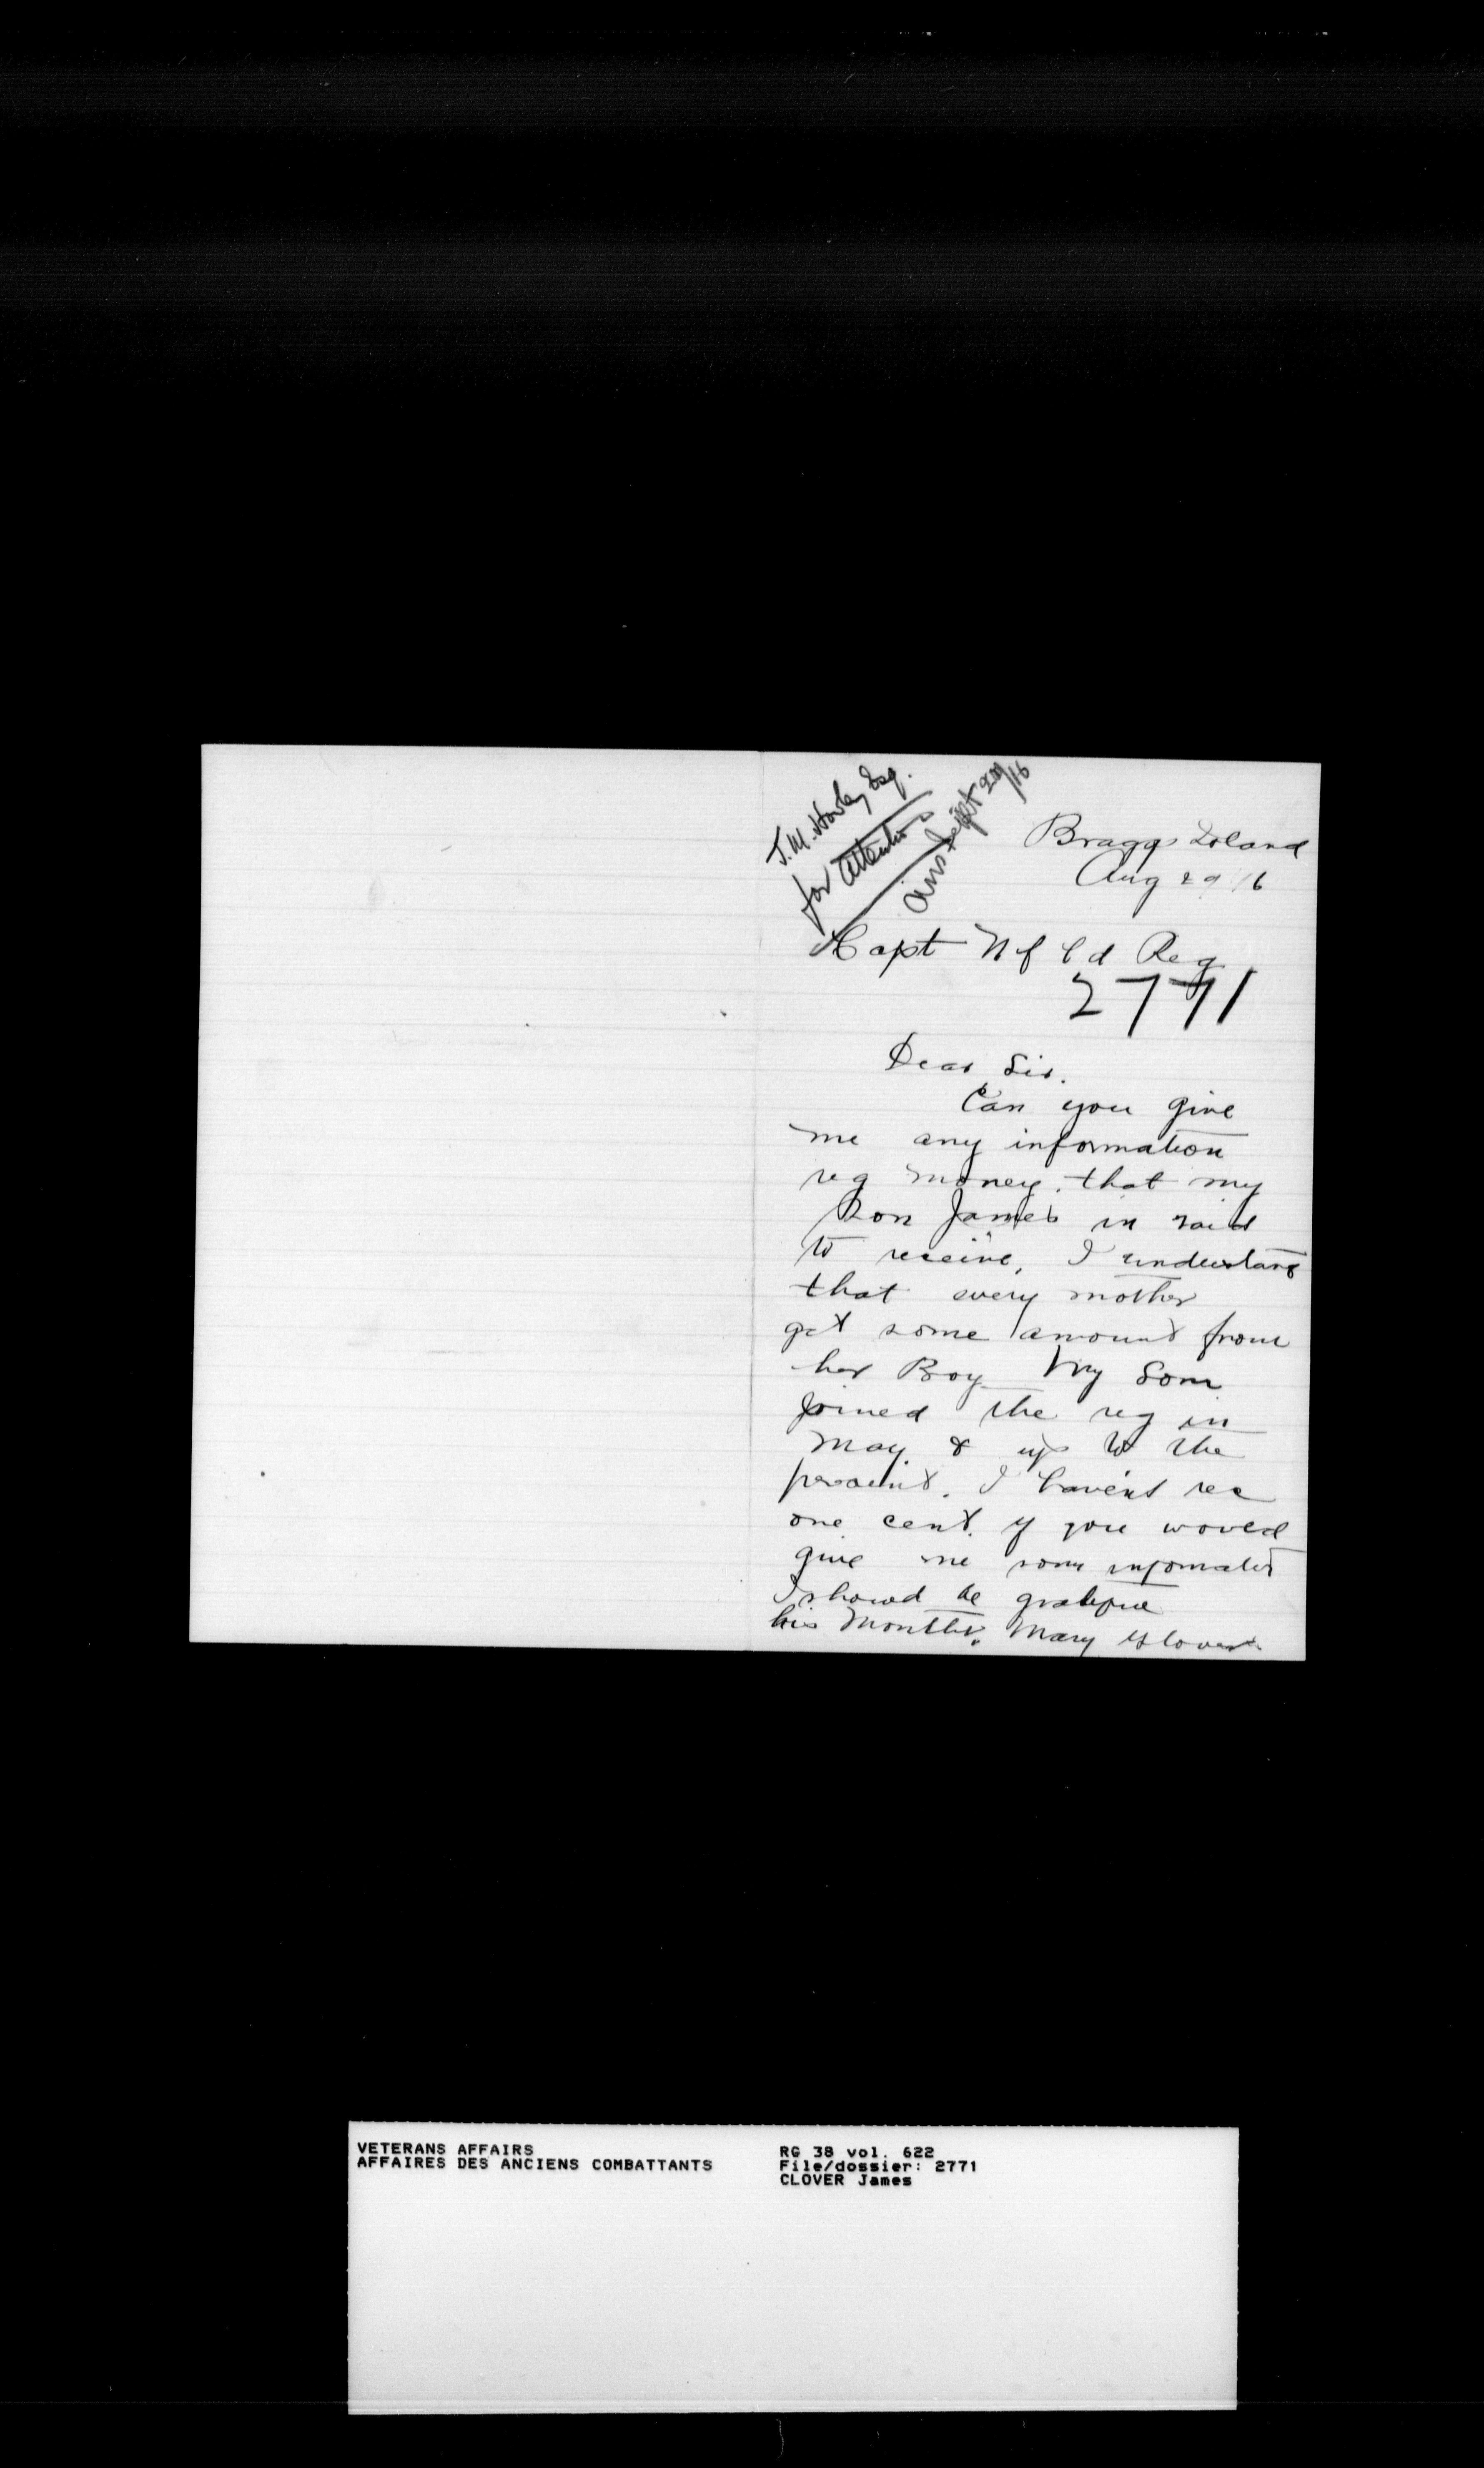 J. M. Howley Esq.
for attention
ans Sept 2nd/16
Braggs Island
Aug 29 16
Capt Nfld Reg
2771
Dear Sir.
Can you give
me any information
reg money. that my
Son James in said
to receive, I understand
that every mother
get some amount from
her Boy My Son
Joined the reg in
May & up to the
persaint. I havent rec
one cent. if you woued
give me some
I shoued be
his Monther. Mary Glover
VETERANS AFFAIRS
AFFAIRES DES ANCIENS COMBATTANTS
RG 38 vol. 622
File/dossier: 2771
CLOVER James